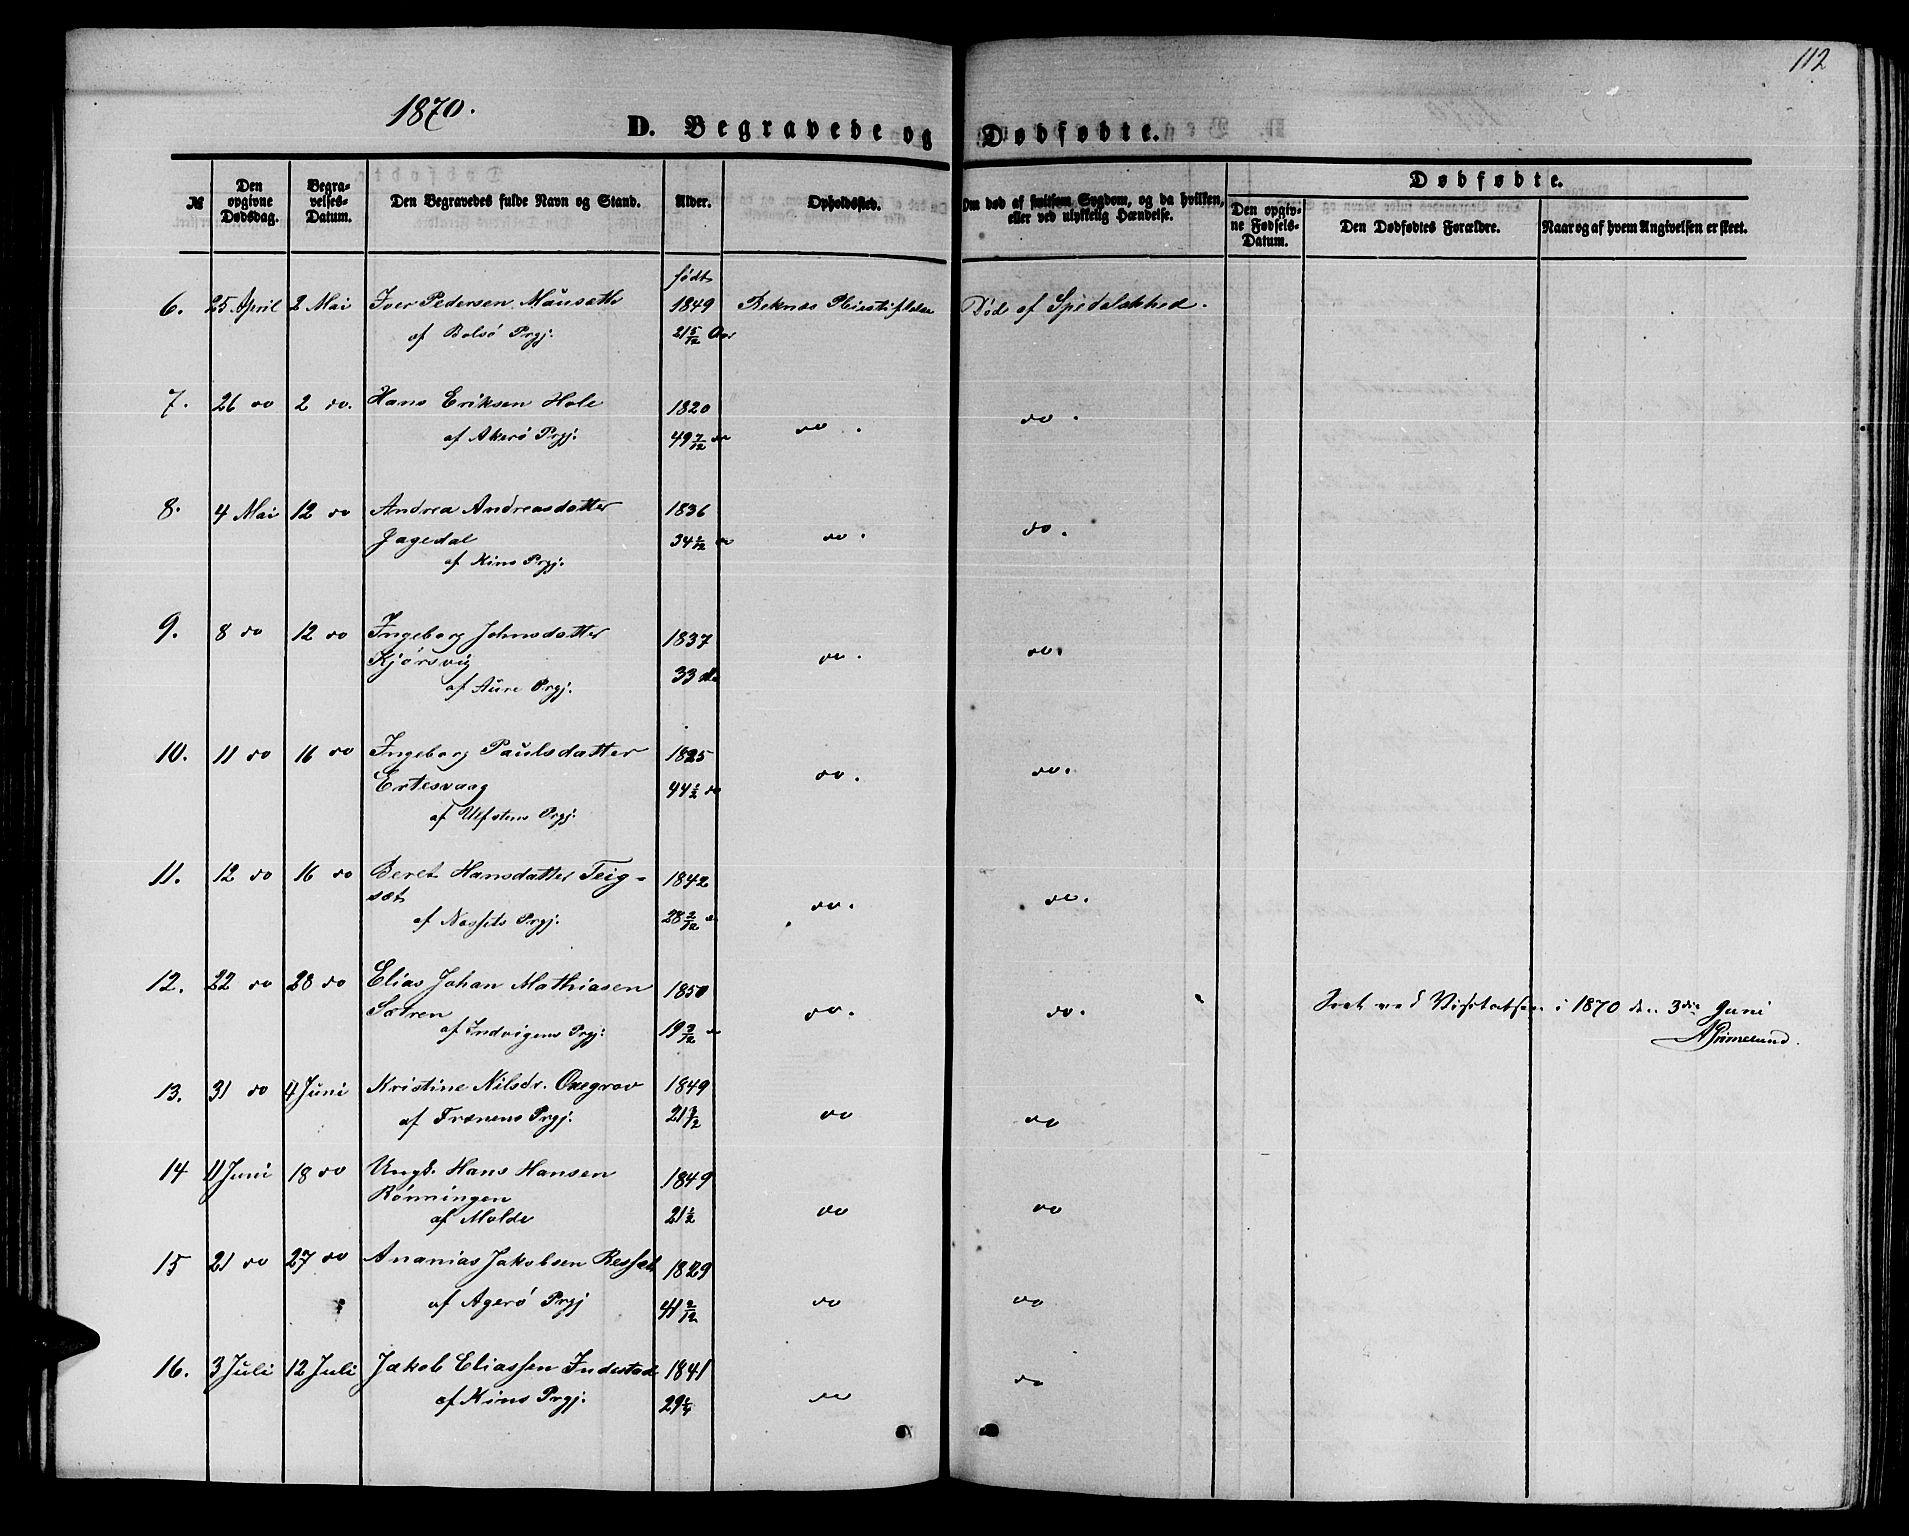 112
1870.
D. Begravede og Dødfødte.
№
Den opgivne Dødsdag.
Begravelses-Datum.
Den Begravedes fulde Navn og Stand.
Alder.
Opholdssted.
Om død af hvilken Sygdom, og da hvilken, eller ved ulykkelig Hændelse.
Dødfødte.
Den opgivne Fødsels-Datum.
Den Dødfødtes Forældre.
Naar og af hvem Angivelsen er skeet.
født
6. 25 April 2 Mai Iver Pedersen Mauseth 1849 Reknæs Død af Spedalskhed.
af Bolsø Prgj. 21 5/12 Aar
7. 26 do 2 do. Hans Eriksen Hole 1820
af Akerø Prgj. 49 7/12 do do. do.
8. 4 Mai 12 do Andrea Andreasdatter 1836
Jagedal 34 2/12 do do. do.
af Kins Prgj.
9. 8 do 12 do Ingeborg Johnsdatter 1837
Kjørsvig do. do.
af Aure Prgj. 33 do
10. 11 do 16 do Ingeborg Paulsdatter 1825
Ertesvaag 44 1/2 do do. do.
af Ulfstens Prgj.
11. 12 do 16 do Beret Hansdatter Teig-
sæt 1842 do. do.
af Nessets Prgj. 28 2/12 do
12. 22 do 28 do Elias Johan Mathiasen 1850
Sætren do. do. Seet ved Visitatsen i 1870 den 3die Juni
af Indvigens Prgj. 19 2/12 do AGrimelund.
13. 31 do 4 Juni Kristine Nilsdr. Oxegrov 1849
af Frænens Prgj. do do
14 11 Juni 18 do Ungk. Hans Hansen 1849
Rønningen
af Molde 21 1/2 do do
15 21 do 27 do Ananias Jakobsen 1829
af Agerø Prgj 41 2/12 do do
16. 3 Juli 12 Juli Jakob Eliassen Indestad 1841 do
af Kins Prgj. do